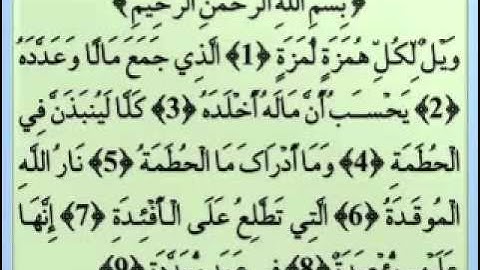 ﴿بِسْمِ اللَّهِ الرَّحْمَٰنِ الرَّحِيمِ﴾
وَيْلٌ لِكُلِّ هُمَزَةٍ لُمَزَةٍ ﴿1﴾ الَّذِي جَمَعَ مَالًا وَعَدَّدَهُ
﴿2﴾ يَحْسَبُ أَنَّ مَالَهُ أَخْلَدَهُ ﴿3﴾ كَلَّا لَيُنْبَذَنَّ فِي
الْحُطَمَةِ ﴿4﴾ وَمَا أَدْرَاكَ مَا الْحُطَمَةُ ﴿5﴾ نَارُ اللَّهِ
الْمُوقَدَةُ ﴿6﴾ الَّتِي تَطَّلِعُ عَلَى الْأَفْئِدَةِ ﴿7﴾ إِنَّهَا
عَلَيْهِمْ مُؤْصَدَةٌ ﴿8﴾ فِي عَمَدٍ مُمَدَّدَةٍ ﴿9﴾